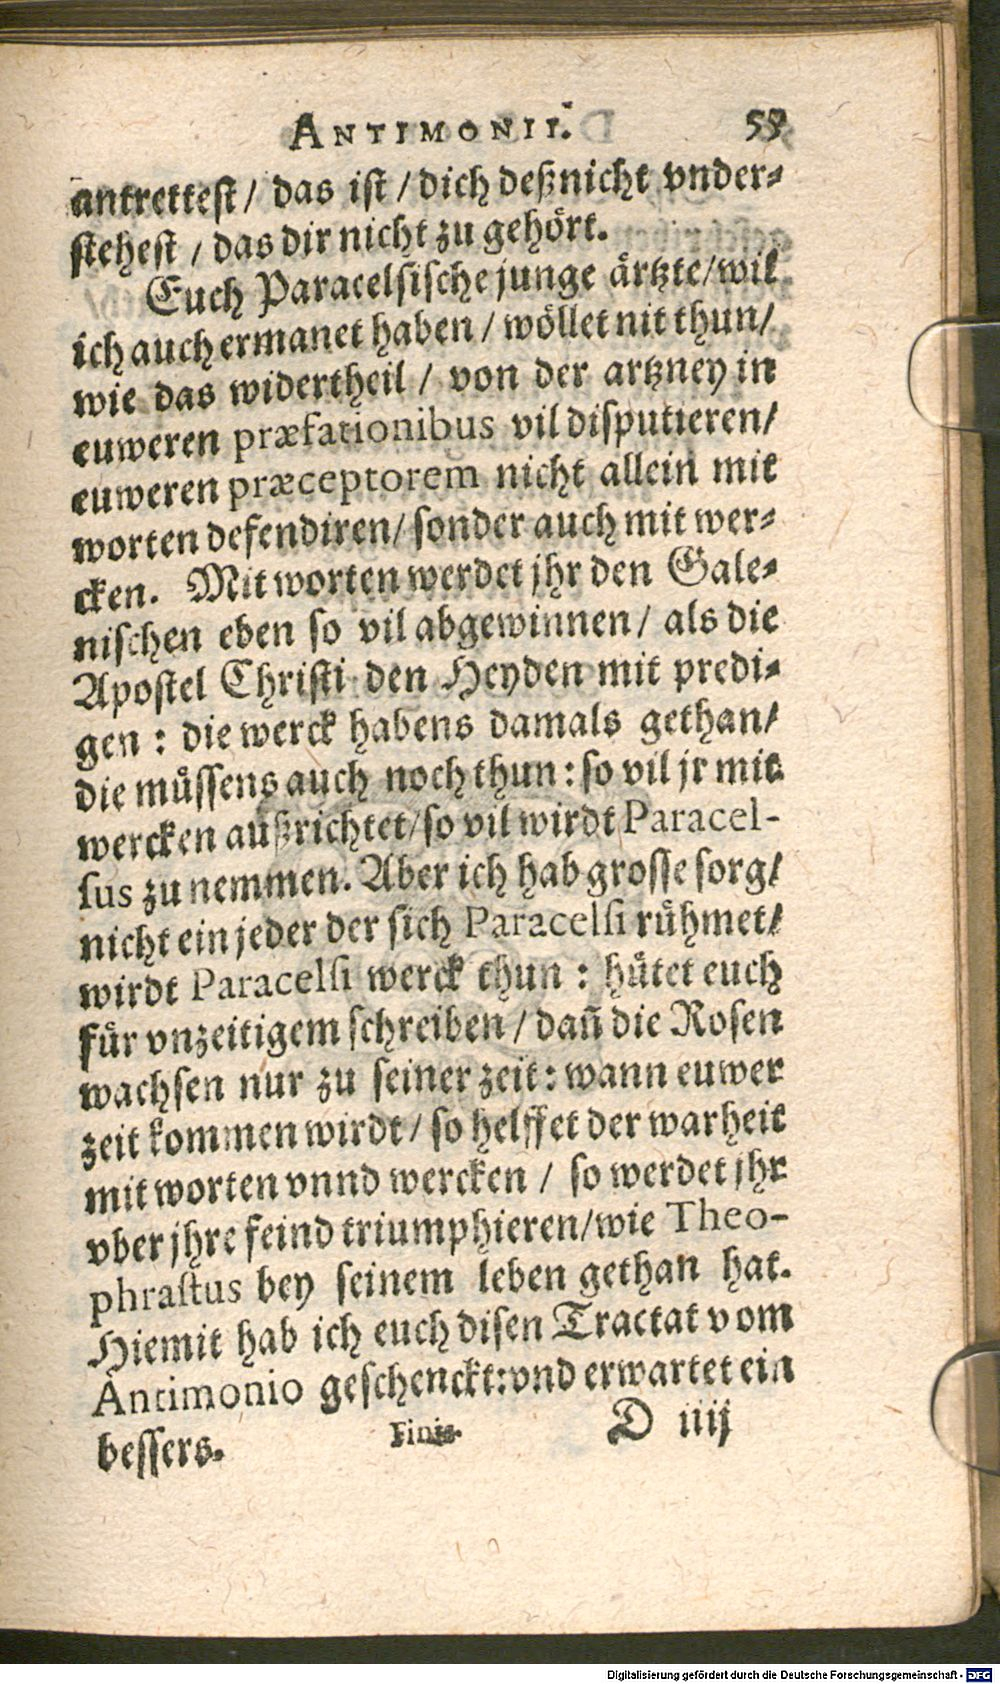 ANTIMONII. 55
antrettest / das ist / dich deß nicht vnder⸗
stehest / das dir nicht zu gehört.
Euch Paracelsische junge ärtzte / wil
ich auch ermanet haben / wöllet nit thun /
wie das widertheil / von der artzney in
euweren præfationibus vil disputieren /
euweren præceptorem nicht allein mit
worten defendiren / sonder auch mit wer⸗
cken. Mit worten werdet jhr den Gale⸗
nischen eben so vil abgewinnen / als die
Apostel Christi den Heyden mit predi⸗
gen : die werck habens damals gethan /
die müssens auch noch thun : so vil jr mit
wercken außrichtet / so vil wirdt Paracel-
sus zu nemmen. Aber ich hab grosse sorg /
nicht ein jeder der sich Paracelsi rühmet /
wirdt Paracelsi werck thun : hütet euch
für vnzeitigem schreiben / dañ die Rosen
wachsen nur zu seiner zeit : wann euwer
zeit kommen wirdt / so helffet der warheit
mit worten vnnd wercken / so werdet jhr
vber jhre feind triumphieren / wie Theo-
phrastus bey seinem leben gethan hat.
Hiemit hab ich euch disen Tractat vom
Antimonio geschenckt : vnd erwartet ein
bessers. Finis. D iiij
Digitalisierung gefördert durch die Deutsche Forschungsgemeinschaft - DFG